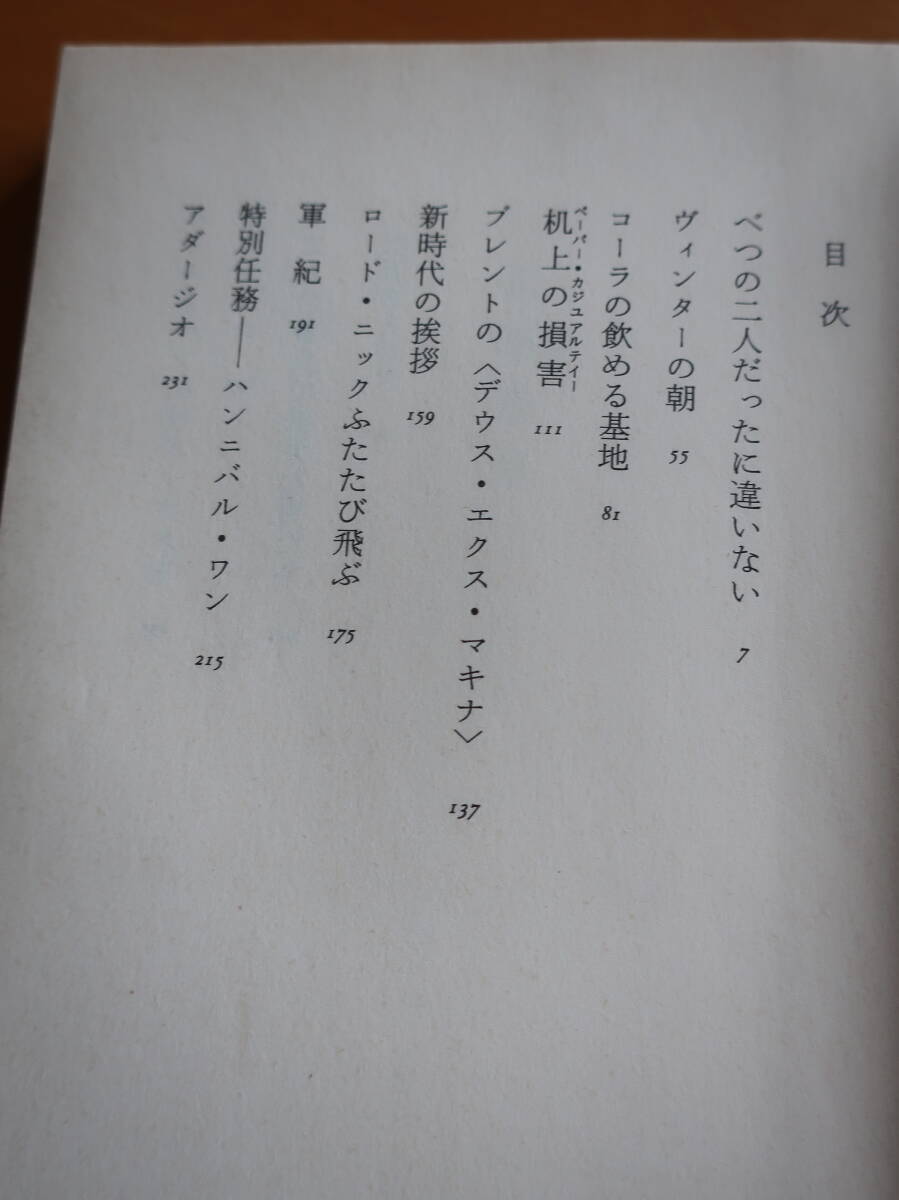 目次
べつの二人だったに違いない 7
ヴィンターの朝 55
コーラの飲める基地 81
机上の損害 111
ペーパー・カジュアルティー
ブレントの〈デウス・エクス・マキナ〉 137
新時代の挨拶 159
ロード・ニックふたたび飛ぶ 175
軍紀 191
特別任務——ハンニバル・ワン 215
アダージオ 231